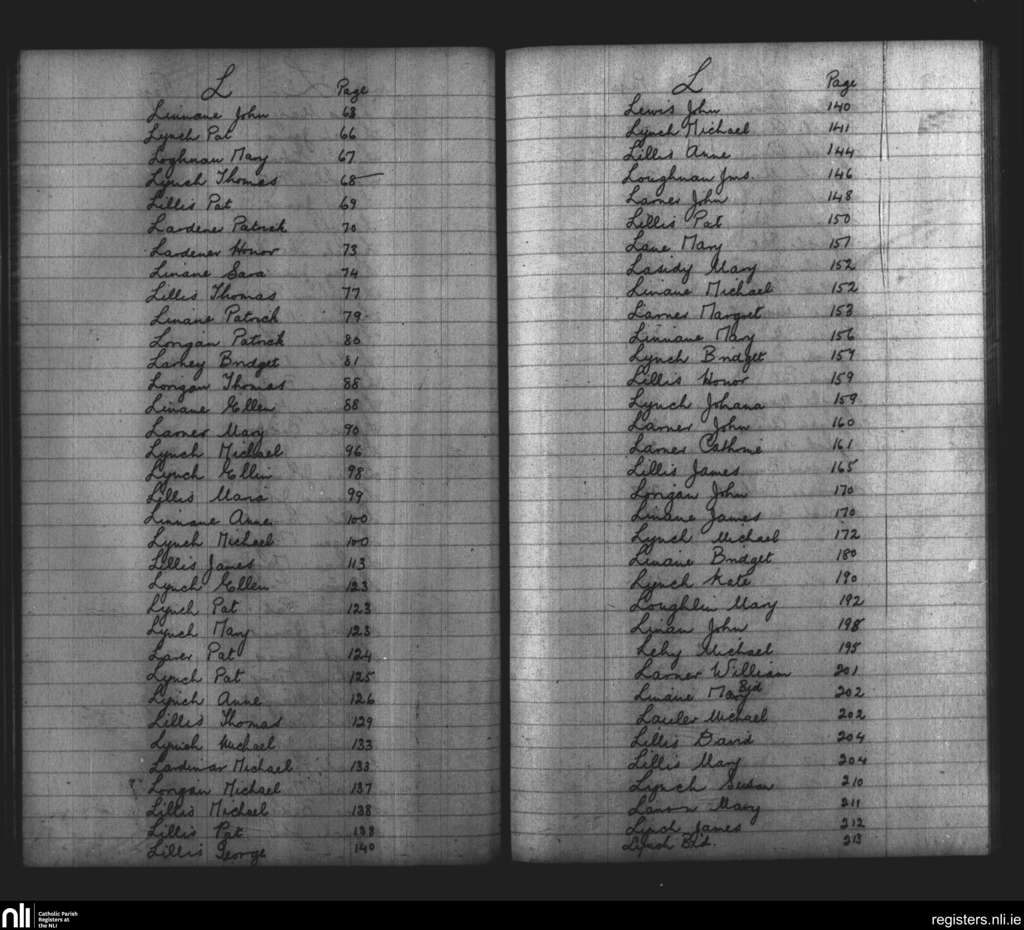 L Page
Linnane John 63
Lynch Pat 66
Loghnan Mary 67
Lynch Thomas 68
Lillis Pat 69
Lardener Patrick 70
Lardener Honor 73
Linane Sara 74
Lillis Thomas 77
Linane Patrick 79
Longan Patrick 80
Larhey Bridget 81
Lorigan Thomas 88
Linane Ellen 88
Larner Mary 90
Lynch Michael 96
Lynch Ellin 98
Lillis Maria 99
Linnane Anne 100
Lynch Michael 100
Lillis James 113
Lynch Ellen 123
Lynch Pat 123
Lynch Mary 123
Larer Pat 124
Lynch Pat 125
Lynch Anne 126
Lillis Thomas 129
Lynch Michael 133
Lardinar Michael 133
Longan Michael 137
Lillis Michael 138
Lillis Pat 138
Lillis George 140
L Page
Lewis John 140
Lynch Michael 141
Lillis Anne 144
Loughnan Jms. 146
Larner John 148
Lillis Pat 150
Lane Mary 151
Lasidy Mary 152
Linane Michael 152
Larner Margret 153
Linnane Mary 156
Lynch Bridget 157
Lillis Honor 159
Lynch Johana 159
Larner John 160
Larner Cathrine 161
Lillis James 165
Longan John 170
Linane James 170
Lynch Michael 172
Linane Bridget 180
Lynch Kate 190
Loughlin Mary 192
Linan John 198
Lehy Michael 195
Larner William 201
Linane Mary Bjd 202
Lawler Michael 202
Lillis David 204
Lillis Mary 204
Lynch Susan 210
Lanon Mary 211
Lynch James 212
Lynch Bd. 213
nli Catholic Parish
Registers at
the NLI
registers.nli.ie